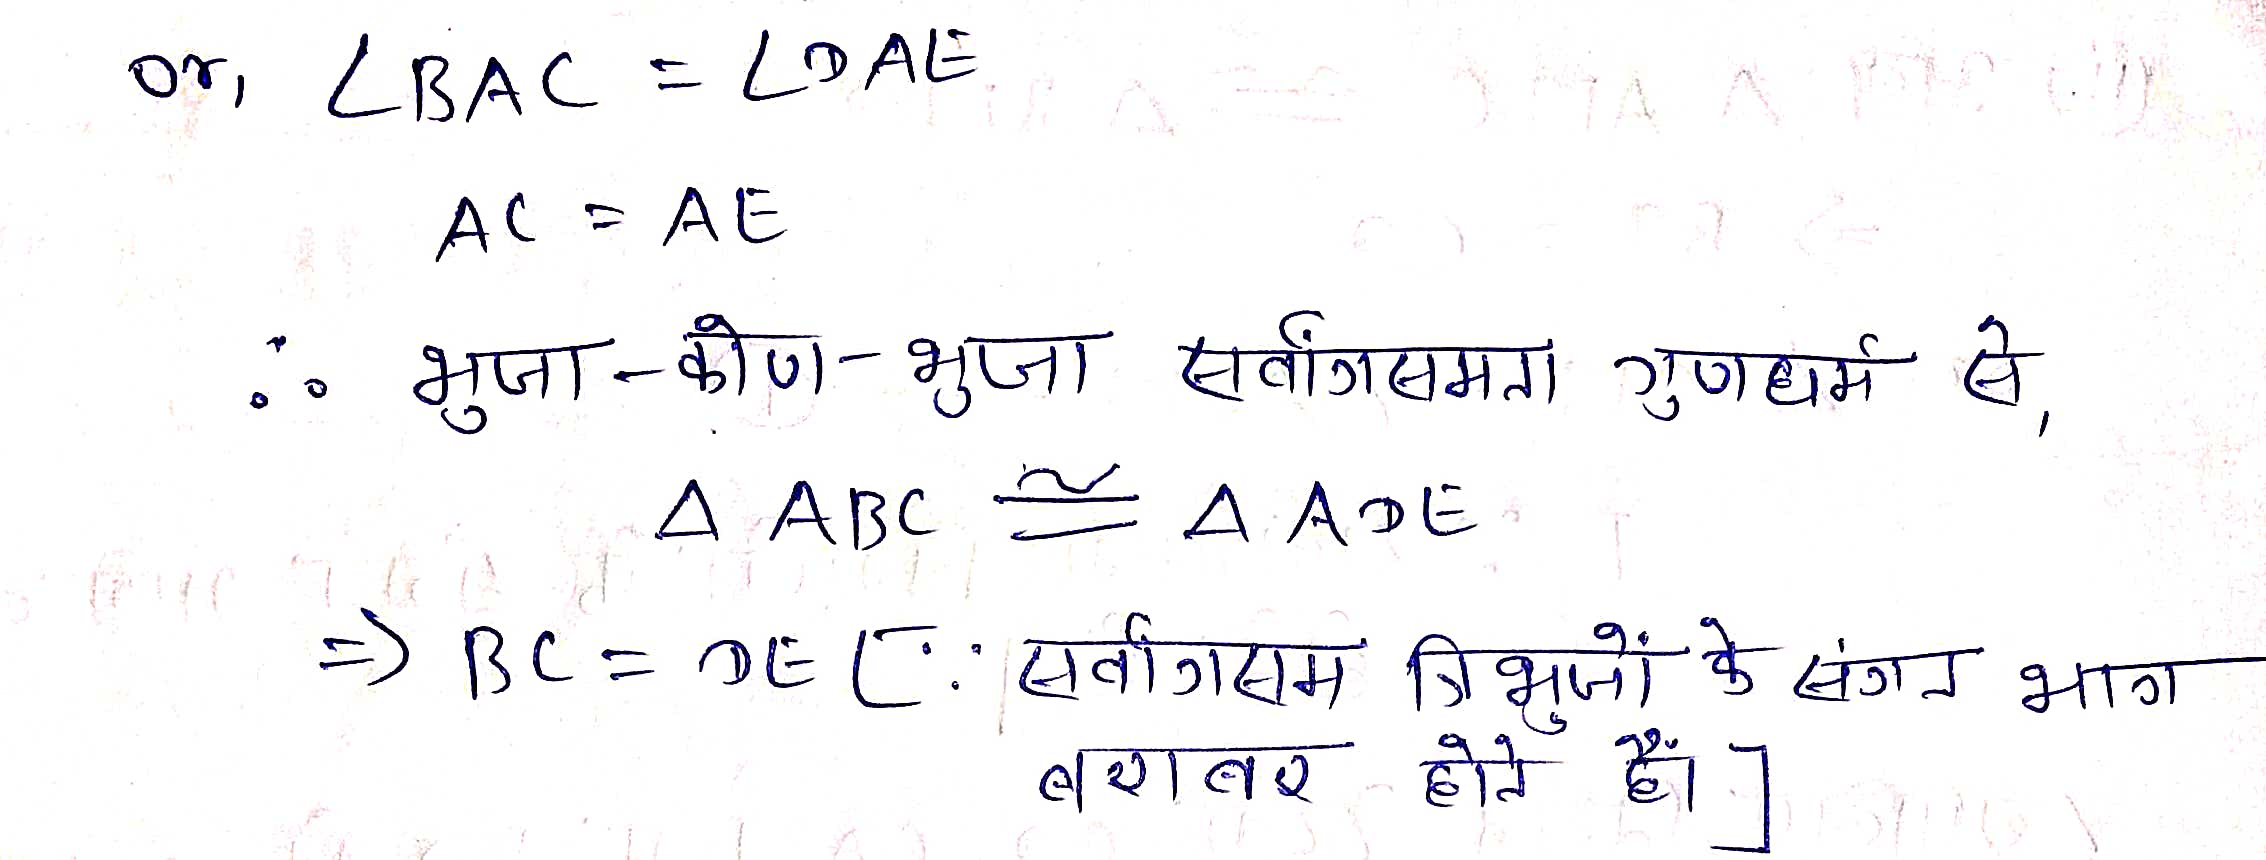 or, ∠BAC = ∠DAE
AC = AE
∴ भुजा-कोण-भुजा सर्वांगसमता गुणधर्म से,
Δ ABC ≅ Δ ADE
⇒ BC = DE [∵ सर्वांगसम त्रिभुजों के संगत भाग
बराबर होते हैं।]